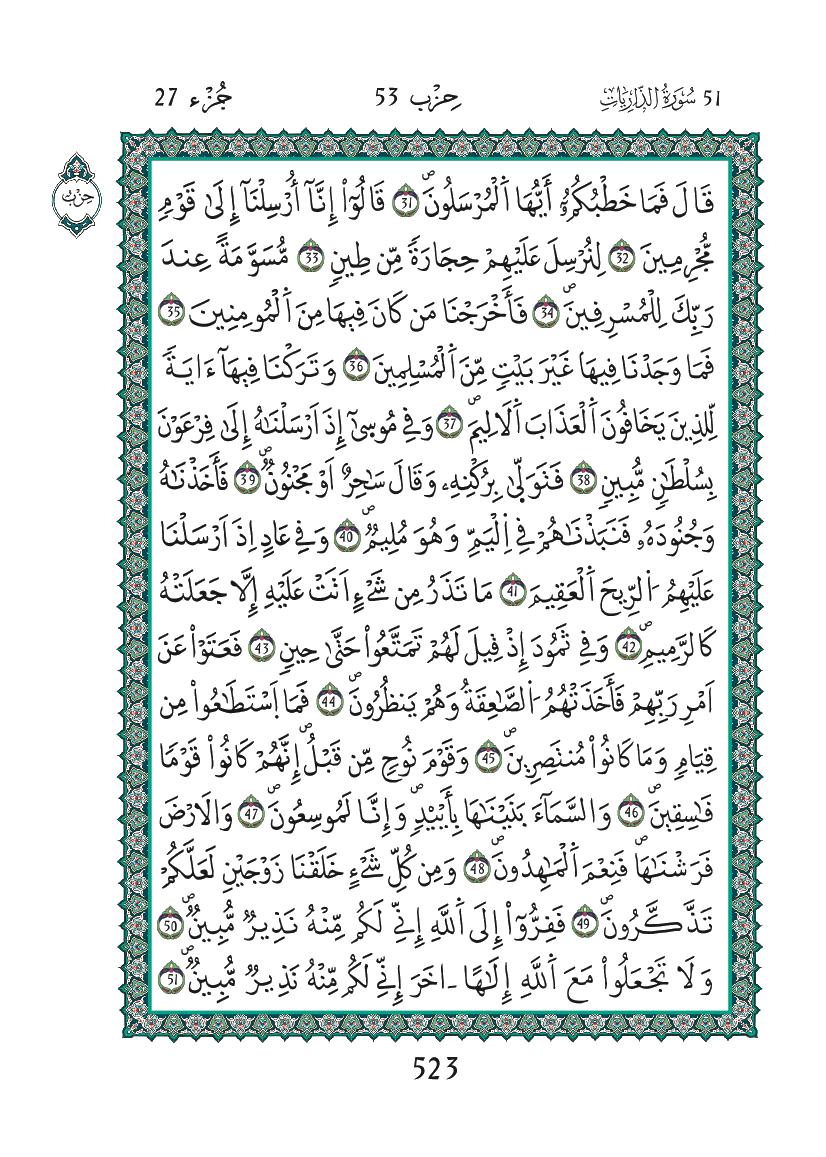 51 سُورَةُ الذَّارِيَاتِ حِزْب 53 جُزْء 27
حِزْب
قَالَ فَمَا خَطْبُكُمُۥٓ أَيُّهَا اَ۬لْمُرْسَلُونَۖ 31 قَالُوٓاْ إِنَّآ أُرْسِلْنَآ إِلَىٰ قَوْمٖ
مُّجْرِمِينَ 32 لِنُرْسِلَ عَلَيْهِمْ حِجَارَةٗ مِّن طِينٖ 33 مُّسَوَّمَةً عِندَ
رَبِّكَ لِلْمُسْرِفِينَۖ 34 فَأَخْرَجْنَا مَن كَانَ فِيهَا مِنَ اَ۬لْمُومِنِينَ 35
فَمَا وَجَدْنَا فِيهَا غَيْرَ بَيْتٖ مِّنَ اَ۬لْمُسْلِمِينَ 36 وَتَرَكْنَا فِيهَآ ءَايَةٗ
لِّلذِينَ يَخَافُونَ اَ۬لْعَذَابَ اَ۬لَالِيمَۖ 37 وَفِے مُوس۪ىٰٓ إِذَ اَرْسَلْنَٰهُ إِلَىٰ فِرْعَوْنَ
بِسُلْطَٰنٖ مُّبِينٖ 38 فَتَوَلّ۪ىٰ بِرُكْنِهِۦ وَقَالَ سَٰحِرٌ اَوْ مَجْنُونٞۖ 39 فَأَخَذْنَٰهُ
وَجُنُودَهُۥ فَنَبَذْنَٰهُمْ فِے اِ۬لْيَمِّ وَهُوَ مُلِيمٞۖ 40 وَفِے عَادٍ اِذَ اَرْسَلْنَا
عَلَيْهِمُ اُ۬لرِّيحَ اَ۬لْعَقِيمَ 41 مَا تَذَرُ مِن شَےْءٍ اَتَتْ عَلَيْهِ إِلَّا جَعَلَتْهُ
كَالرَّمِيمِۖ 42 وَفِے ثَمُودَ إِذْ قِيلَ لَهُمْ تَمَتَّعُواْ حَتَّىٰ حِينٖ 43 فَعَتَوْاْ عَنَ
اَمْرِ رَبِّهِمْ فَأَخَذَتْهُمُ اُ۬لصَّٰعِقَةُ وَهُمْ يَنظُرُونَۖ 44 فَمَا اَ۪سْتَطَٰعُواْ مِن
قِيَامٖ وَمَا كَانُواْ مُنتَصِرِينَۖ 45 وَقَوْمَ نُوحٖ مِّن قَبْلُۖ إِنَّهُمْ كَانُواْ قَوْمٗا
فَٰسِقِينَۖ 46 وَالسَّمَآءَ بَنَيْنَٰهَا بِأَيْيْدٖۖ وَإِنَّا لَمُوسِعُونَۖ 47 وَالَارْضَ
فَرَشْنَٰهَاۖ فَنِعْمَ اَ۬لْمَٰهِدُونَۖ 48 وَمِن كُلِّ شَےْءٍ خَلَقْنَا زَوْجَيْنِ لَعَلَّكُمْ
تَذَّكَّرُونَۖ 49 فَفِرُّوٓاْ إِلَى اَ۬للَّهِ إِنِّے لَكُم مِّنْهُ نَذِيرٞ مُّبِينٞۖ 50
وَلَا تَجْعَلُواْ مَعَ اَ۬للَّهِ إِلَٰهاً ـ اخَرَ إِنِّے لَكُم مِّنْهُ نَذِيرٞ مُّبِينٞۖ 51
523